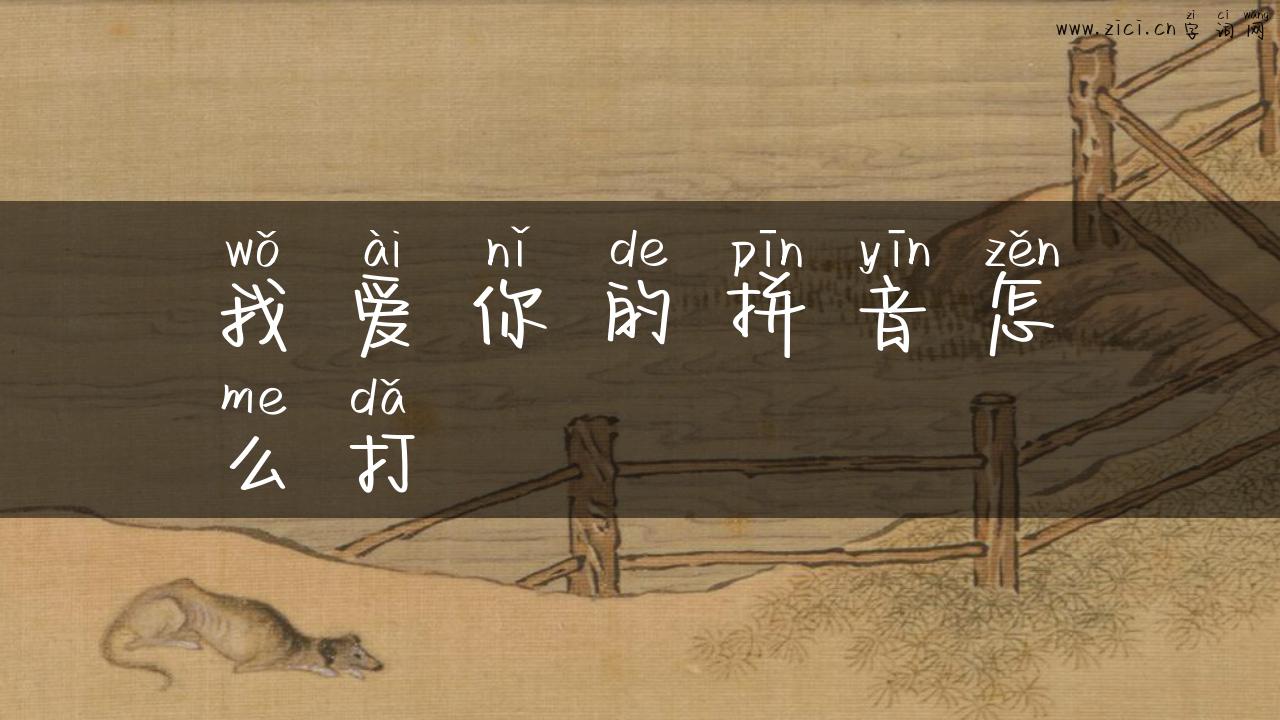 zì cí wǎng
www.zici.cn 字词网
wǒ ài nǐ de pīn yīn zěn
我爱你的拼音怎
me dǎ
么打